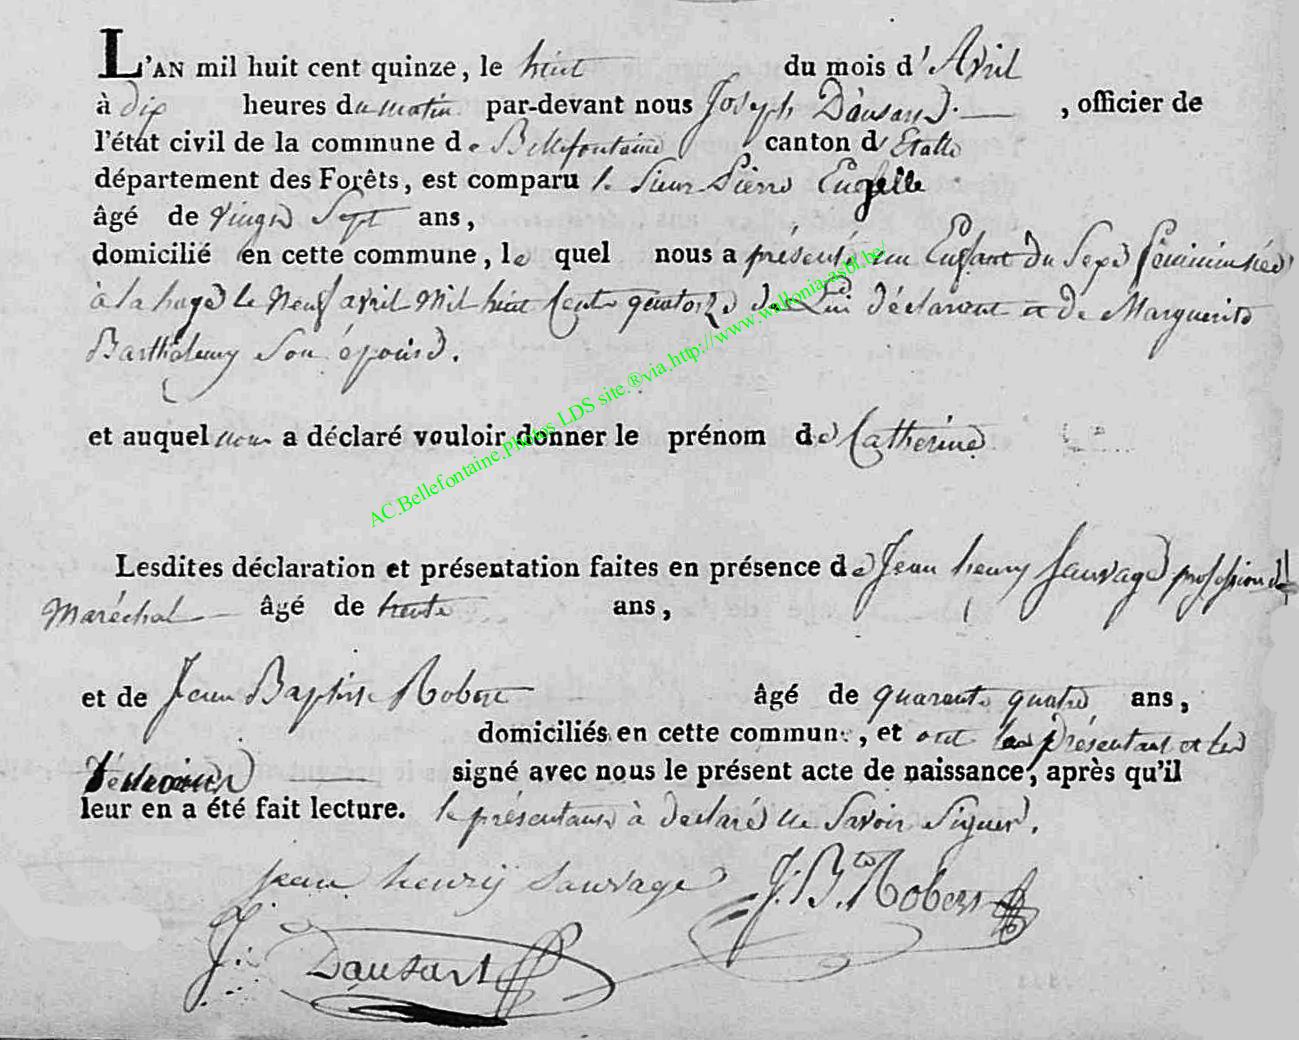 L'AN mil huit cent quinze, le huit du mois d'Avril
à dix heures du matin par-devant nous Joseph Dausard. , officier de
l'état civil de la commune de Bellefontaine canton d'Etalle
département des Forêts, est comparu le Sieur Pierre
âgé de vingt Sept ans,
domicilié en cette commune, le quel nous a présenté un Enfant du Sexe féminin née
à la hage le Neuf avril Mil huit Cent quatorze de Lui déclarant et de Marguerite
Barthelemy Son épouse.
et auquel nous a déclaré vouloir donner le prénom de Catherine
Lesdites déclaration et présentation faites en présence de Jean henry Sauvage profession de
Maréchal âgé de trente ans,
et de Jean Baptiste Robert âgé de quarante quatre ans,
domiciliés en cette commune, et ont présentant et les
signé avec nous le présent acte de naissance, après qu'il
leur en a été fait lecture. le présentant à déclaré ne Savoir Signer.
jean henry Sauvage J. Bte Robert
J. Dausart
AC.Bellefontaine.Photos LDS site.®via.http://www.wallonia.asbl.be/